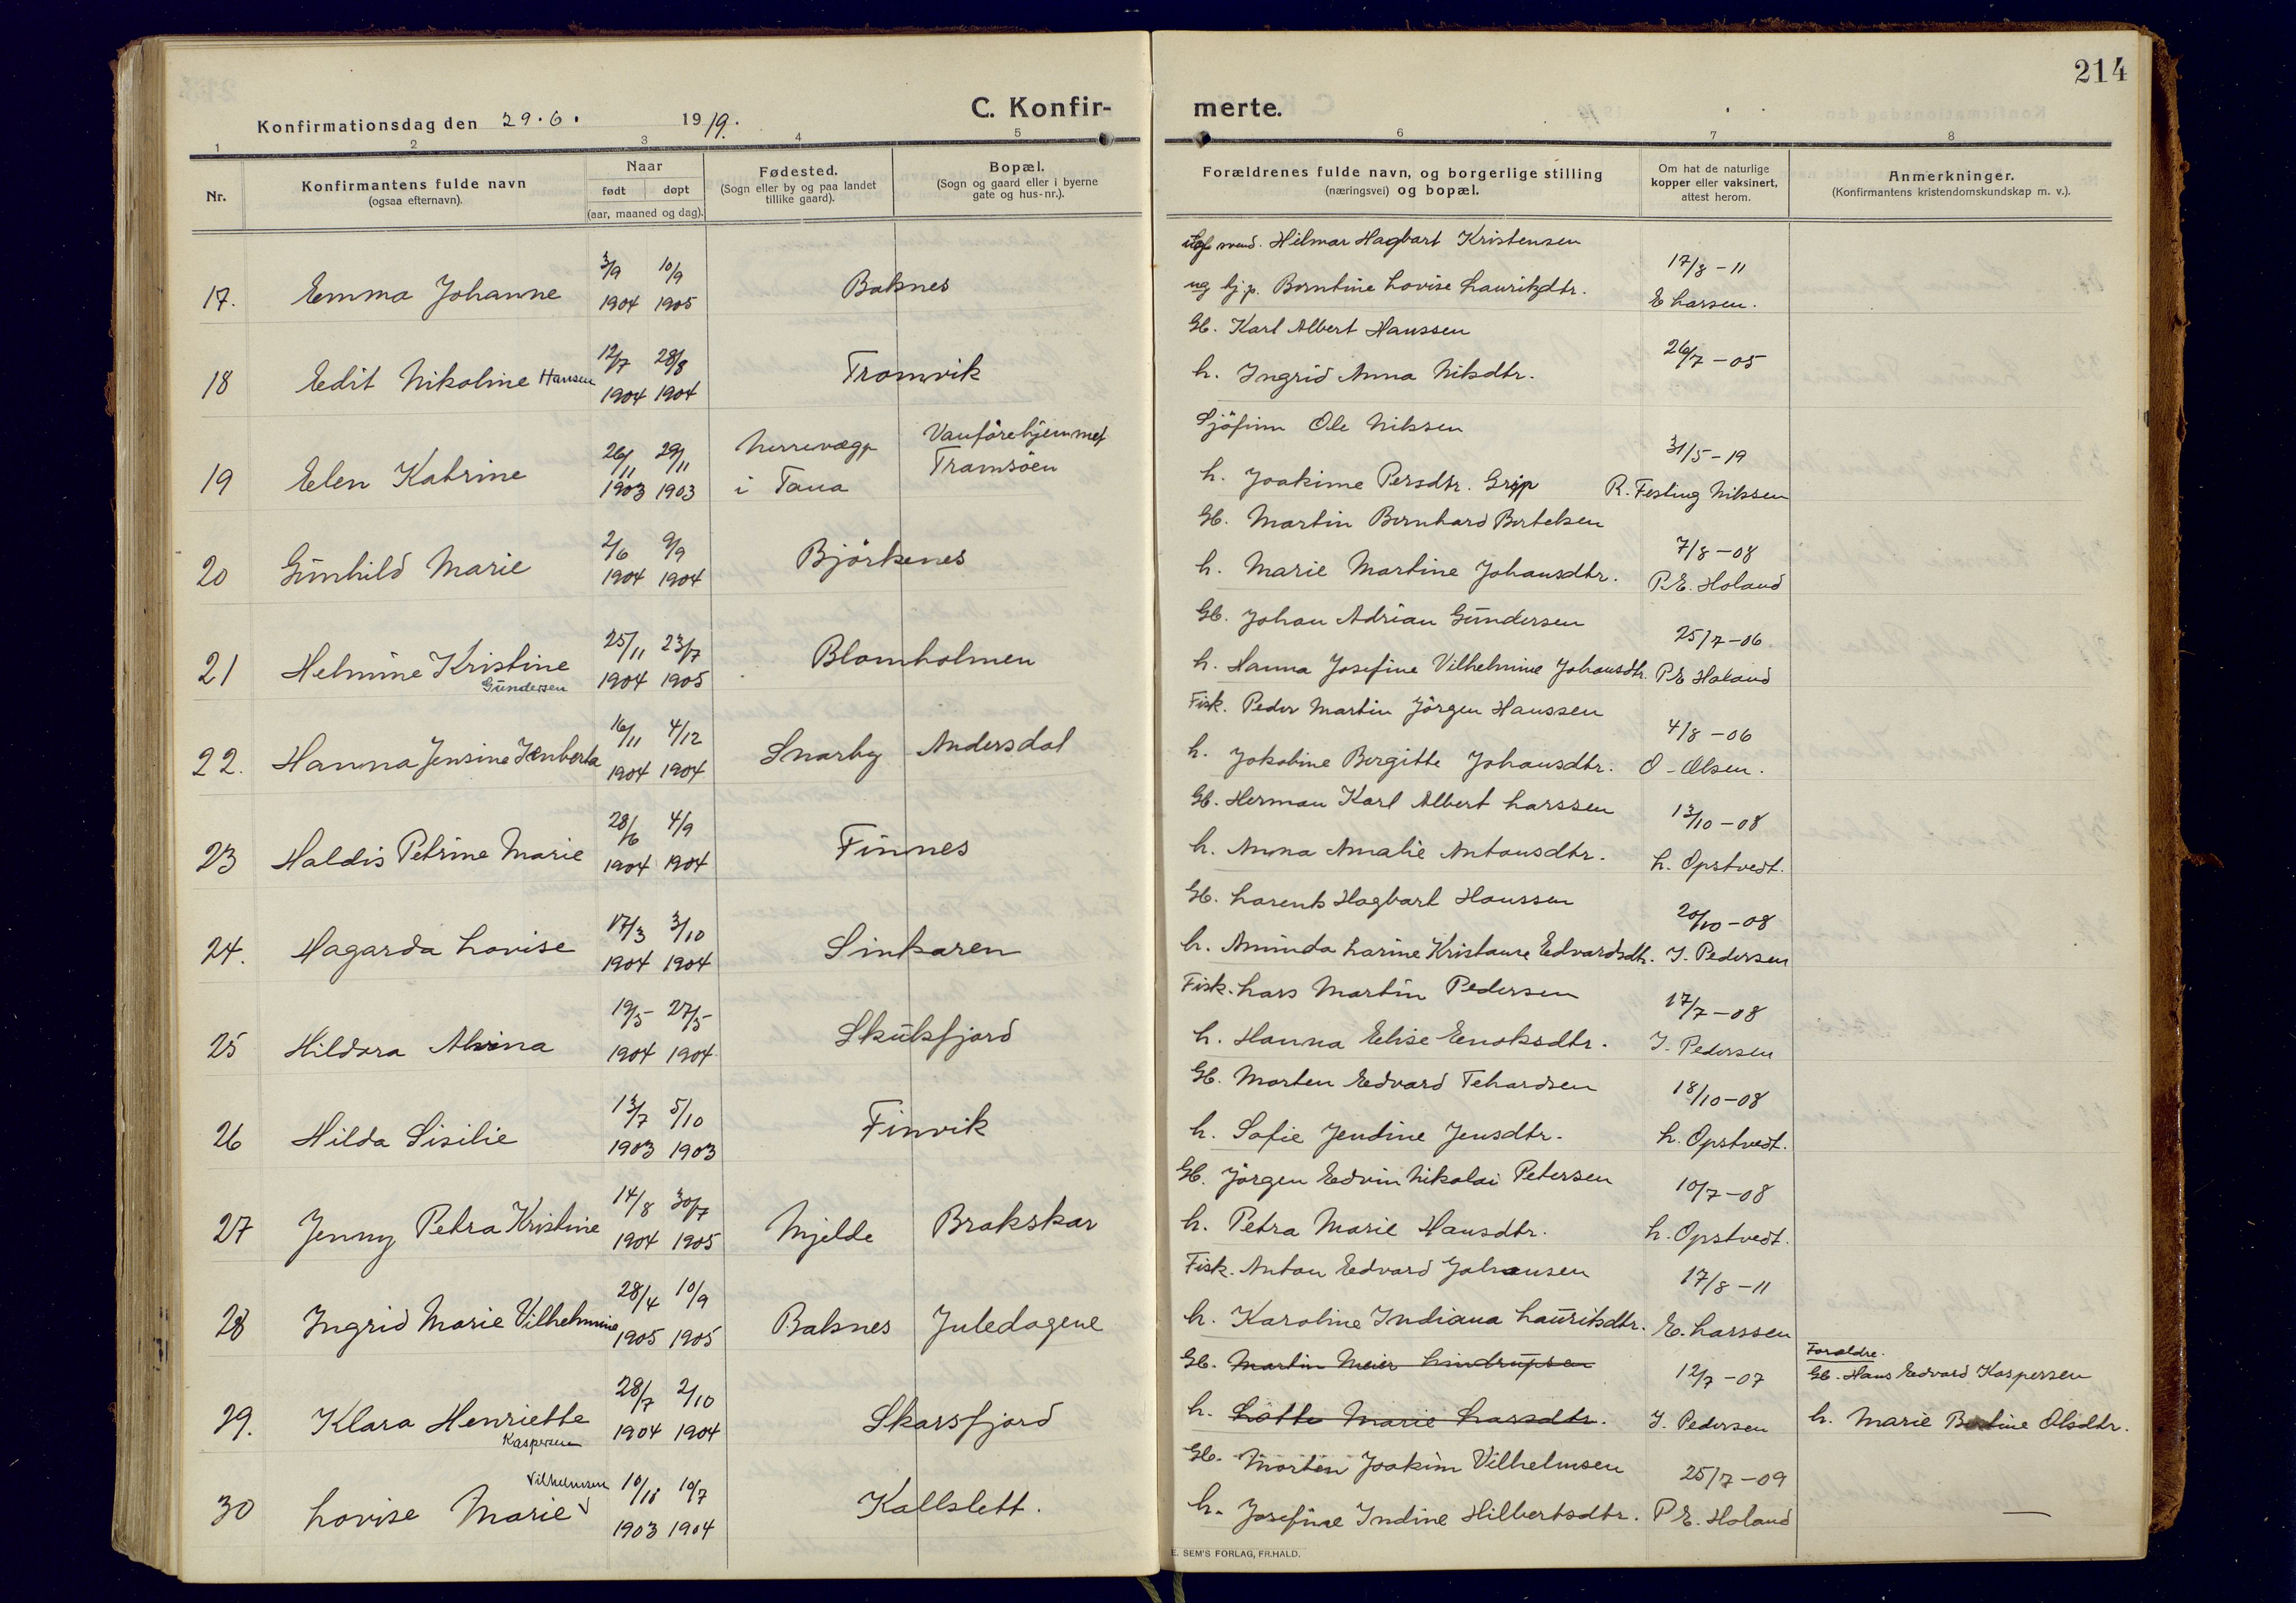 214
Konfirmationsdag den 29.6. 1919.
C. Konfir-
merte.
1 2 3 4 5 6 7 8
Nr.
Konfirmantens fulde navn
(ogsaa efternavn).
Naar
født døpt
(aar, maaned og dag).
Fødested.
(Sogn eller by og paa landet
tillike gaard).
Bopæl.
(Sogn og gaard eller i byerne
gate og hus-nr.).
Forældrenes fulde navn, og borgerlige stilling
(næringsvei) og bopæl.
Om hat de naturlige
kopper eller vaksinert,
attest herom.
Anmerkninger.
(Konfirmantens kristendomskundskap m. v.).
Hilmar Hagbart Kristensen
3/9 10/9 17/8-11
17. Emma Johanne 1904 1905 Baknes ug Berntine Lovise Lauritzdtr. E Larsen.
Gb. Karl Albert Hanssen
12/7 28/8 26/7-05
18 Edit Nikoline Hansen 1904 1904 Tromvik h. Ingrid Anna Nilsdtr.
Sjöfinn Ole Nilssen
26/11 29/11 Vanförehjemmet 31/5-19
19 Elen Katrine 1903 1903 i Tana Tromsöen h. Joakime Persdtr. Grip R. Festing Nilssen
Gb. Martin Bernhard Bertelsen
2/6 9/9 7/8-08
20 Gunhild Marie 1904 1904 Björkenes h. Marie Martine Johansdtr. P.E. Holand
Gb. Johan Adrian Gundersen
25/11 23/7 25/7-06
21 Helmine Kristine 1904 1905 Blomholmen h. Hanna Josefine Vilhelmine Johansdtr. P.E. Holand
Gundersen
Fisk. Peder Martin Jörgen Hanssen
16/11 4/12 4/8-06
22. Hanna Jensine 1904 1904 Snarby Andersdal h. Jakobine Bergitte Johansdtr. O-Olsen.
Gb. Herman Karl Albert Larssen
28/6 4/9 13/10-08
23 Haldis Petrine Marie 1904 1904 Finnes h. Anna Amalie Antonsdtr. L. Opstvedt.
Gb. Lorents Hagbart Hanssen
17/3 3/10 20/10-08
24. Hagarda Lovise 1904 1904 Sinkaren h. Aminda Larine Kristaure Edvardsdtr. J. Pedersen
Fisk. Lars Martin Pedersen
19/5 27/5 17/7-08
25 Hildora Alvina 1904 1904 Skulsfjord h. Hanna Elise Enoksdtr. J. Pedersen
Gb. Morten Edvard Tehardsen
13/7 5/10 18/10-08
26 Hilda Sisilie 1903 1903 Finvik h. Sofie Jendine Jensdtr. L. Opstvedt.
Gb. Jörgen Edvin Nikolai Petersen
14/8 30/7 10/7-08
27 Jenny Petra Kristine 1904 1905 Mjelde Brakskar h. Petra Marie Hansdtr. L. Opstvedt.
Fisk. Anton Edvard Johansen
28/4 10/9 17/8-11
28 Ingrid Marie Vilhelmine 1905 1905 Baknes Juledagene h. Karoline Indiana Lauritsdtr. E. Larssen
Foraldre.
Gb. Martin Meier Lindrupsen Gb. Hans Edvard Kaspersen
28/7 2/10 12/7-07
29. Klara Henriette 1904 1904 Skarsfjord h. Lotte Marie Larsdtr. J. Pedersen h. Marie Olsdtr.
Kaspersen
Gb. Morten Joakim Vilhelmsen
Vilhelmsen 10/7 25/7-09
30 Lovise Marie 1903 1904 Kallslett. h. Josefine Indine Hilbertsdtr. P.E. Holand
E. SEM'S FORLAG, FR.HALD.